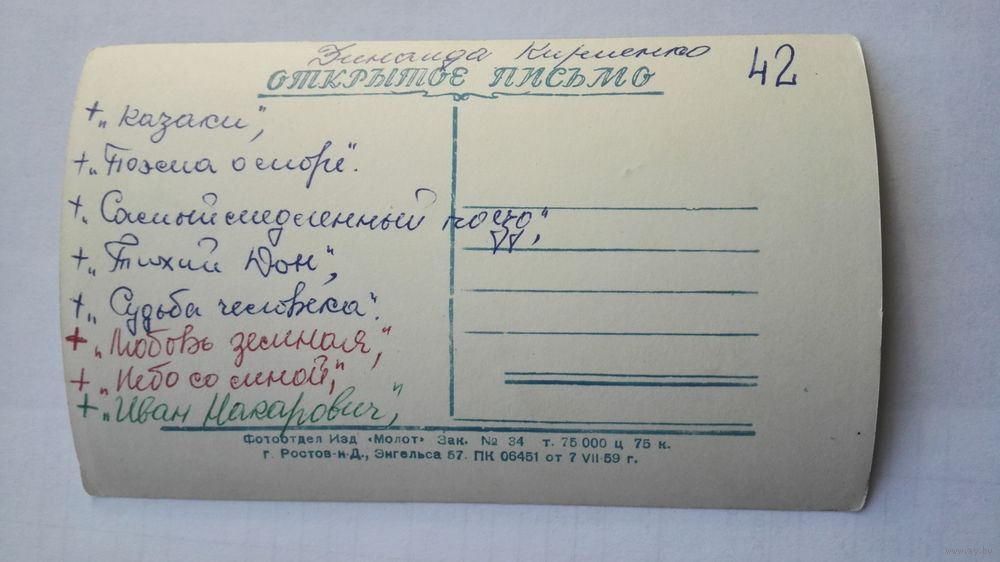 Зинаида Кириенко
42
ОТКРЫТОЕ ПИСЬМО
+ „Казаки",
+ „Поэма о море".
+ „Самый медленный поезд",
+ „Тихий Дон",
+ „Судьба человека".
+ „Любовь земная",
+ „Небо со мной",
+ „Иван Макарович",
Фотоотдел Изд «Молот» Зак. № 84 т. 75 000 ц 75 к.
г. Ростов-н-Д., Энгельса 57. ПК 06451 от 7 VII-59 г.
www.ay.by